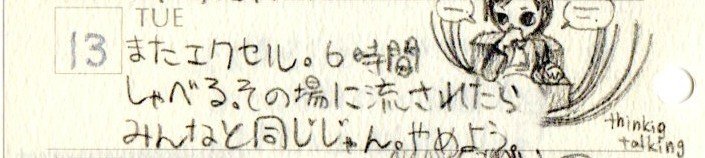 TUE
13
またエクセル。6時間
しゃべる。その場に流されたら
みんなと同じじゃん。やめよう。
thinkig
talking